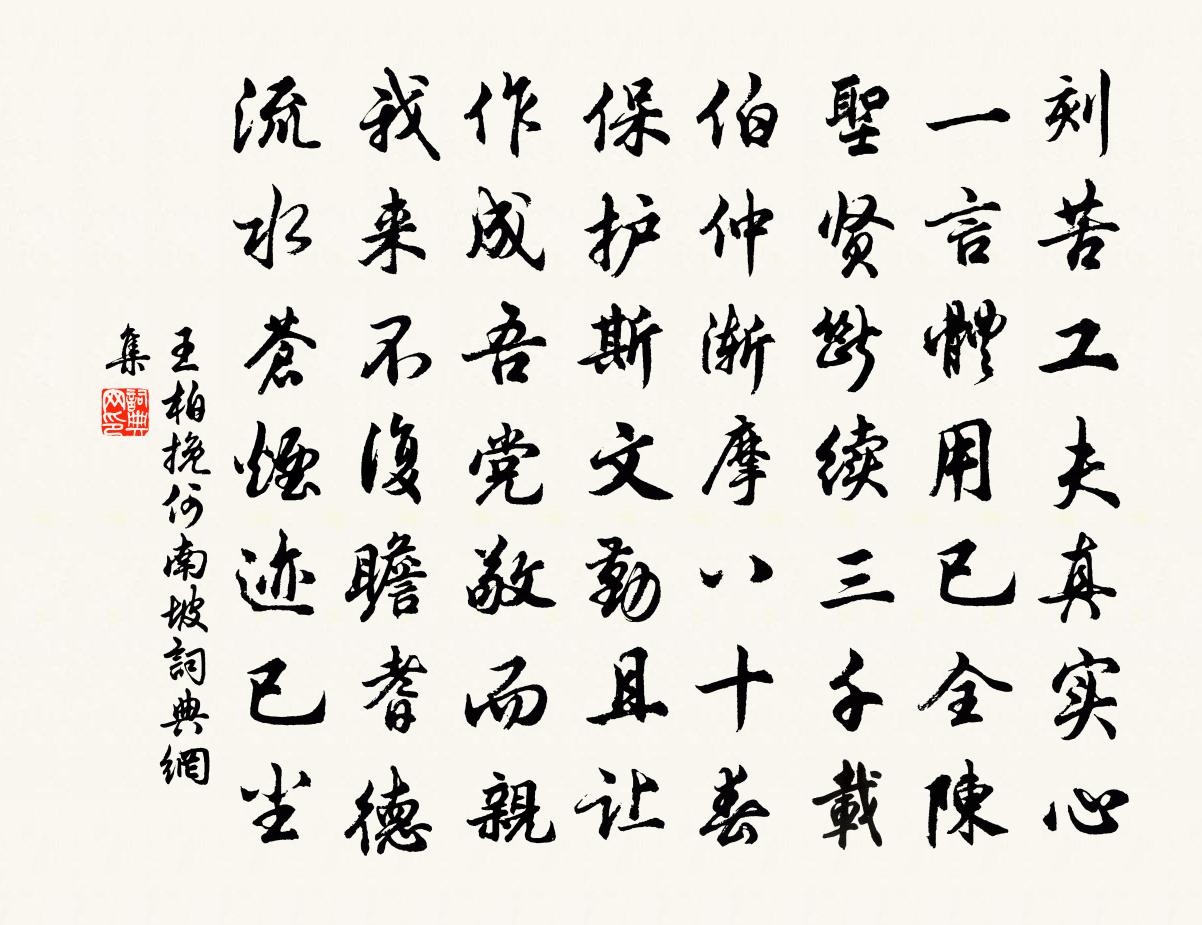 刻苦工夫真实心
一言體用已全陳
聖贤断续三千載
伯仲渐摩八十春
保护斯文勤且让
作成吾党敬而親
我来不復瞻耆德
流水蒼煙迹已尘
王柏挽何南坡詞典網
集
詞典網印